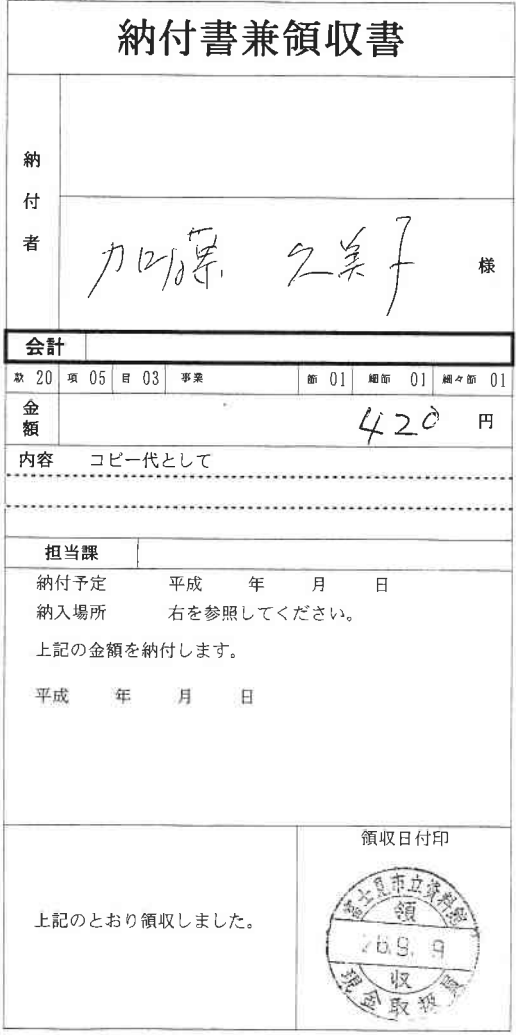 納付書兼領収書
納付者
加藤 久美子 様
会計
款 20 項 05 目 03 事業 節 01 細節 01 細々節 01
金額 420 円
内容 コピー代として
担当課
納付予定 平成 年 月 日
納入場所 右を参照してください。
上記の金額を納付します。
平成 年 月 日
領収日付印
上記のとおり領収しました。
富士見市立資料館
領
26.9.9
収
現金取扱員